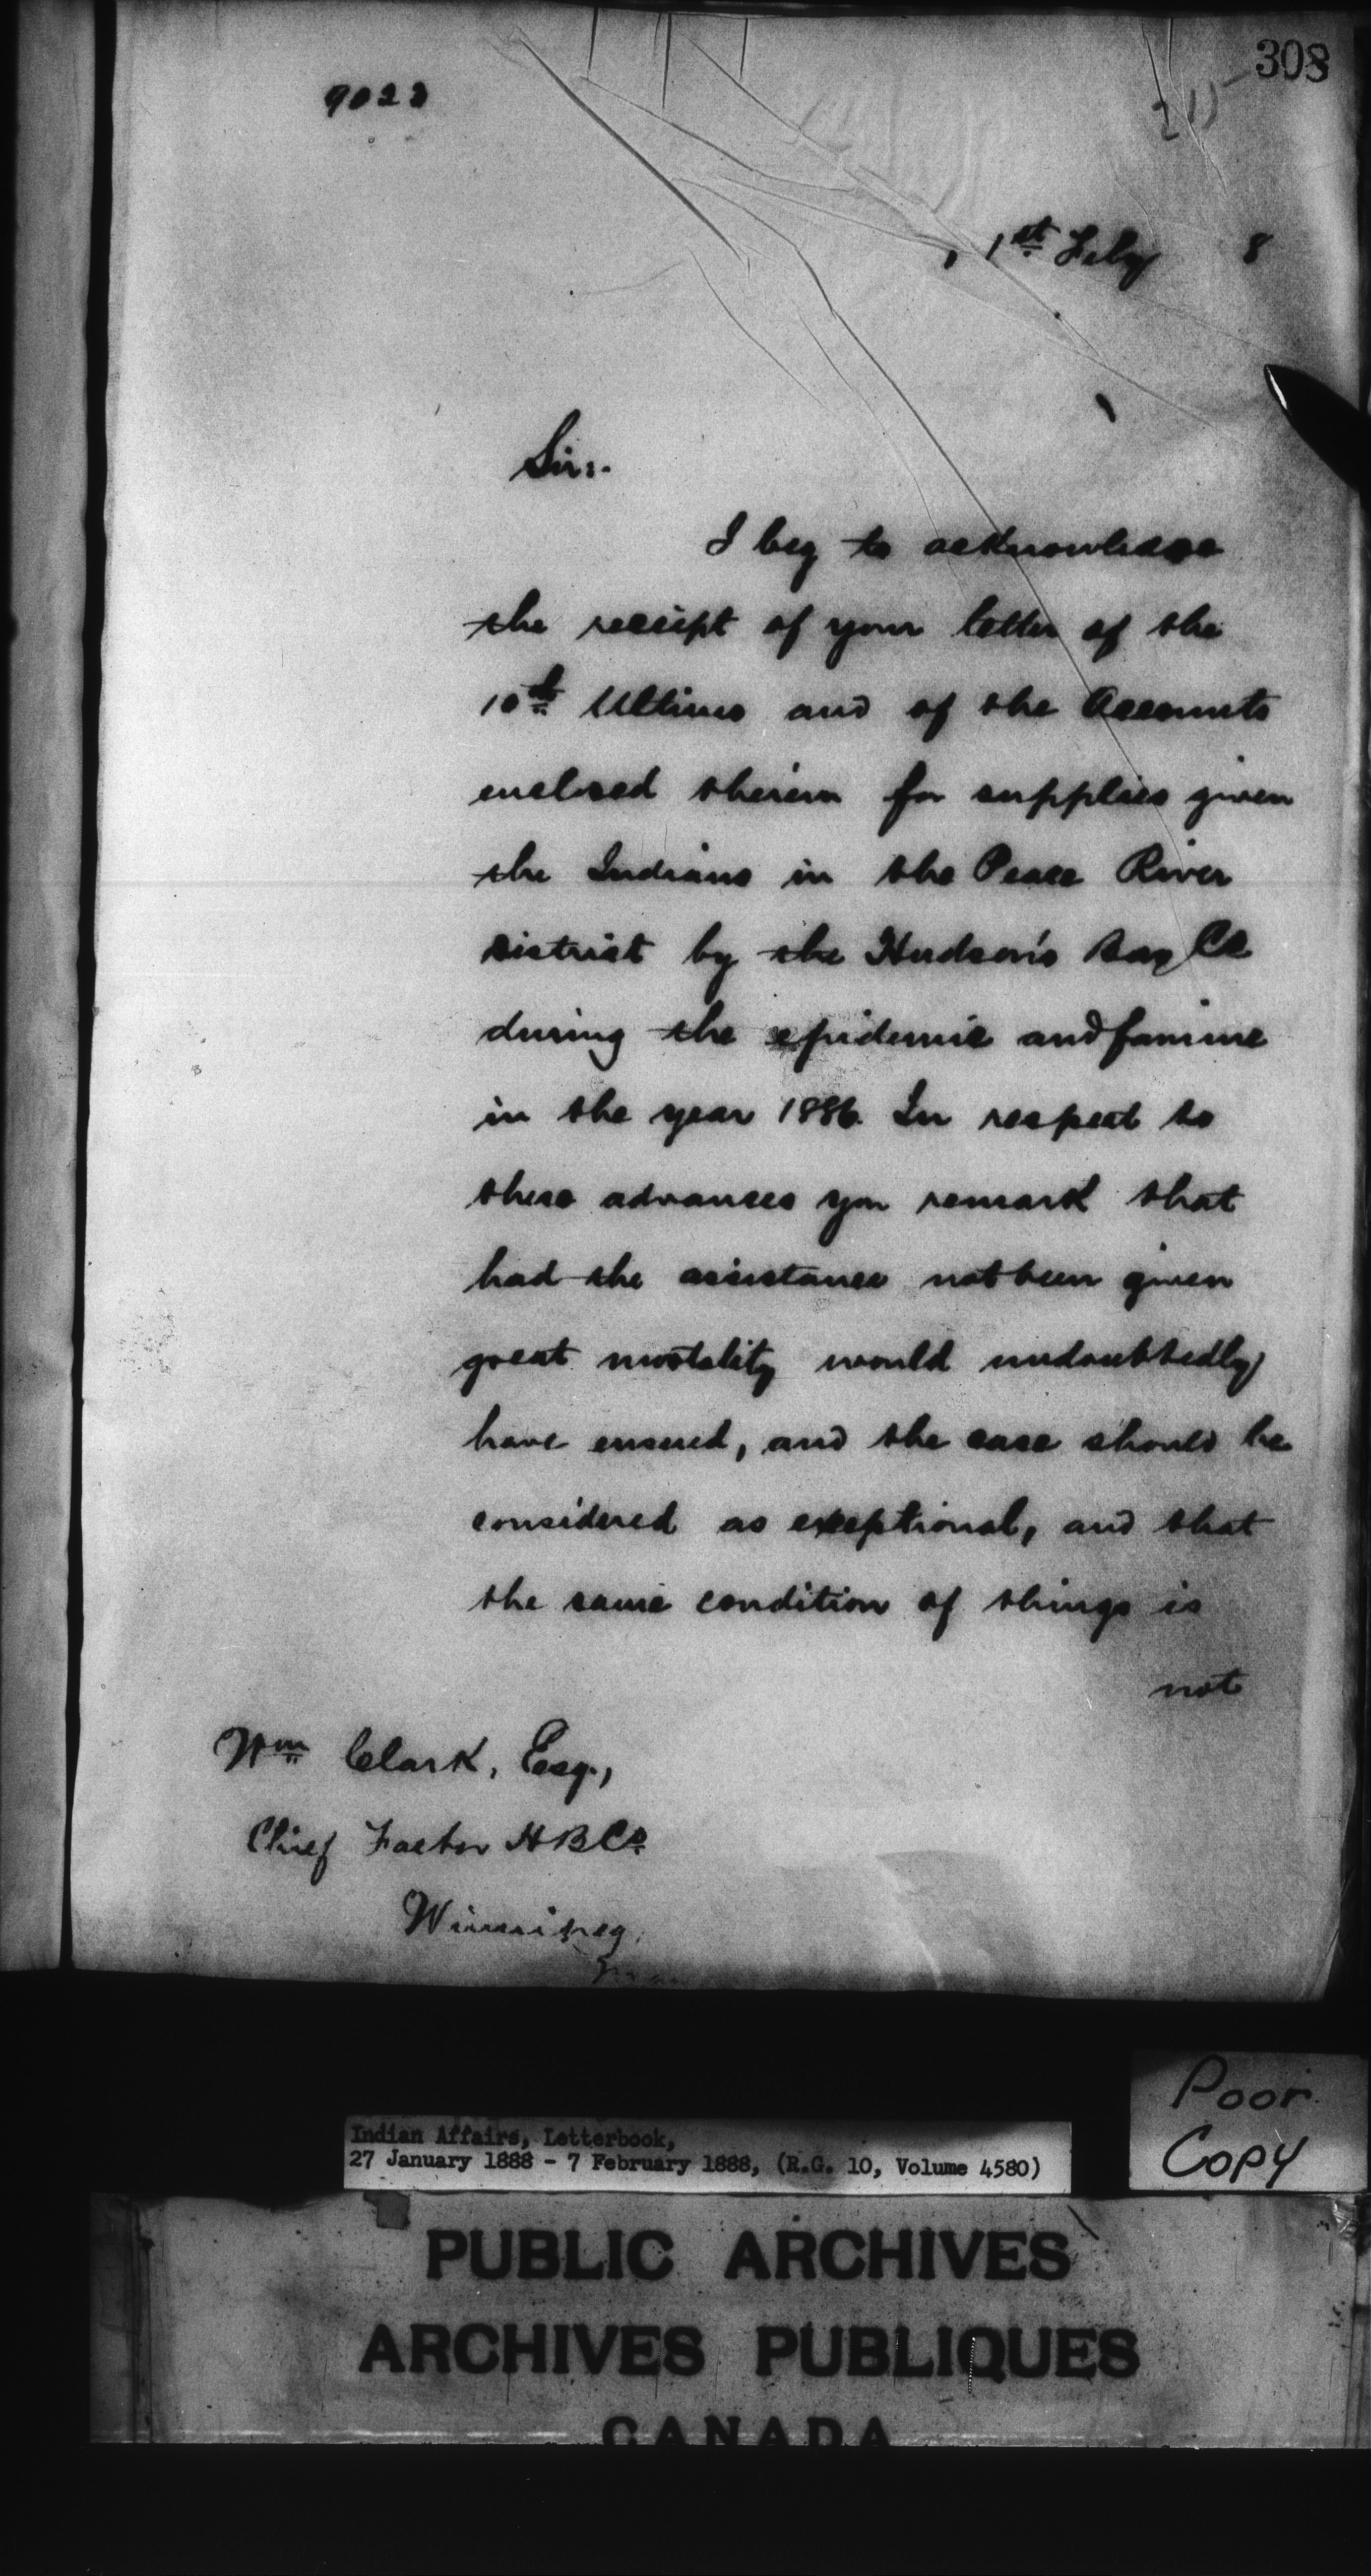 308
9023
1st Feby 8
Sir:-
I beg to acknowledge
the receipt of your letter of the
10th Ultimo and of the Accounts
enclosed therein for supplies given
the Indians in the Peace River
District by the Hudson's Bay Co
during the epidemic and famine
in the year 1886. In respect to
these advances you remark that
had the assistance not been given
great mortality would undoubtedly
have ensued, and the case should be
considered as exceptional, and that
the same condition of things is
not
Wm Clark, Esq.,
Chief Factor H B Co.
Winnipeg,
Poor
Copy
Indian Affairs, Letterbook,
27 January 1888 - 7 February 1888, (R.G. 10, Volume 4580)
PUBLIC ARCHIVES
ARCHIVES PUBLIQUES
CANADA